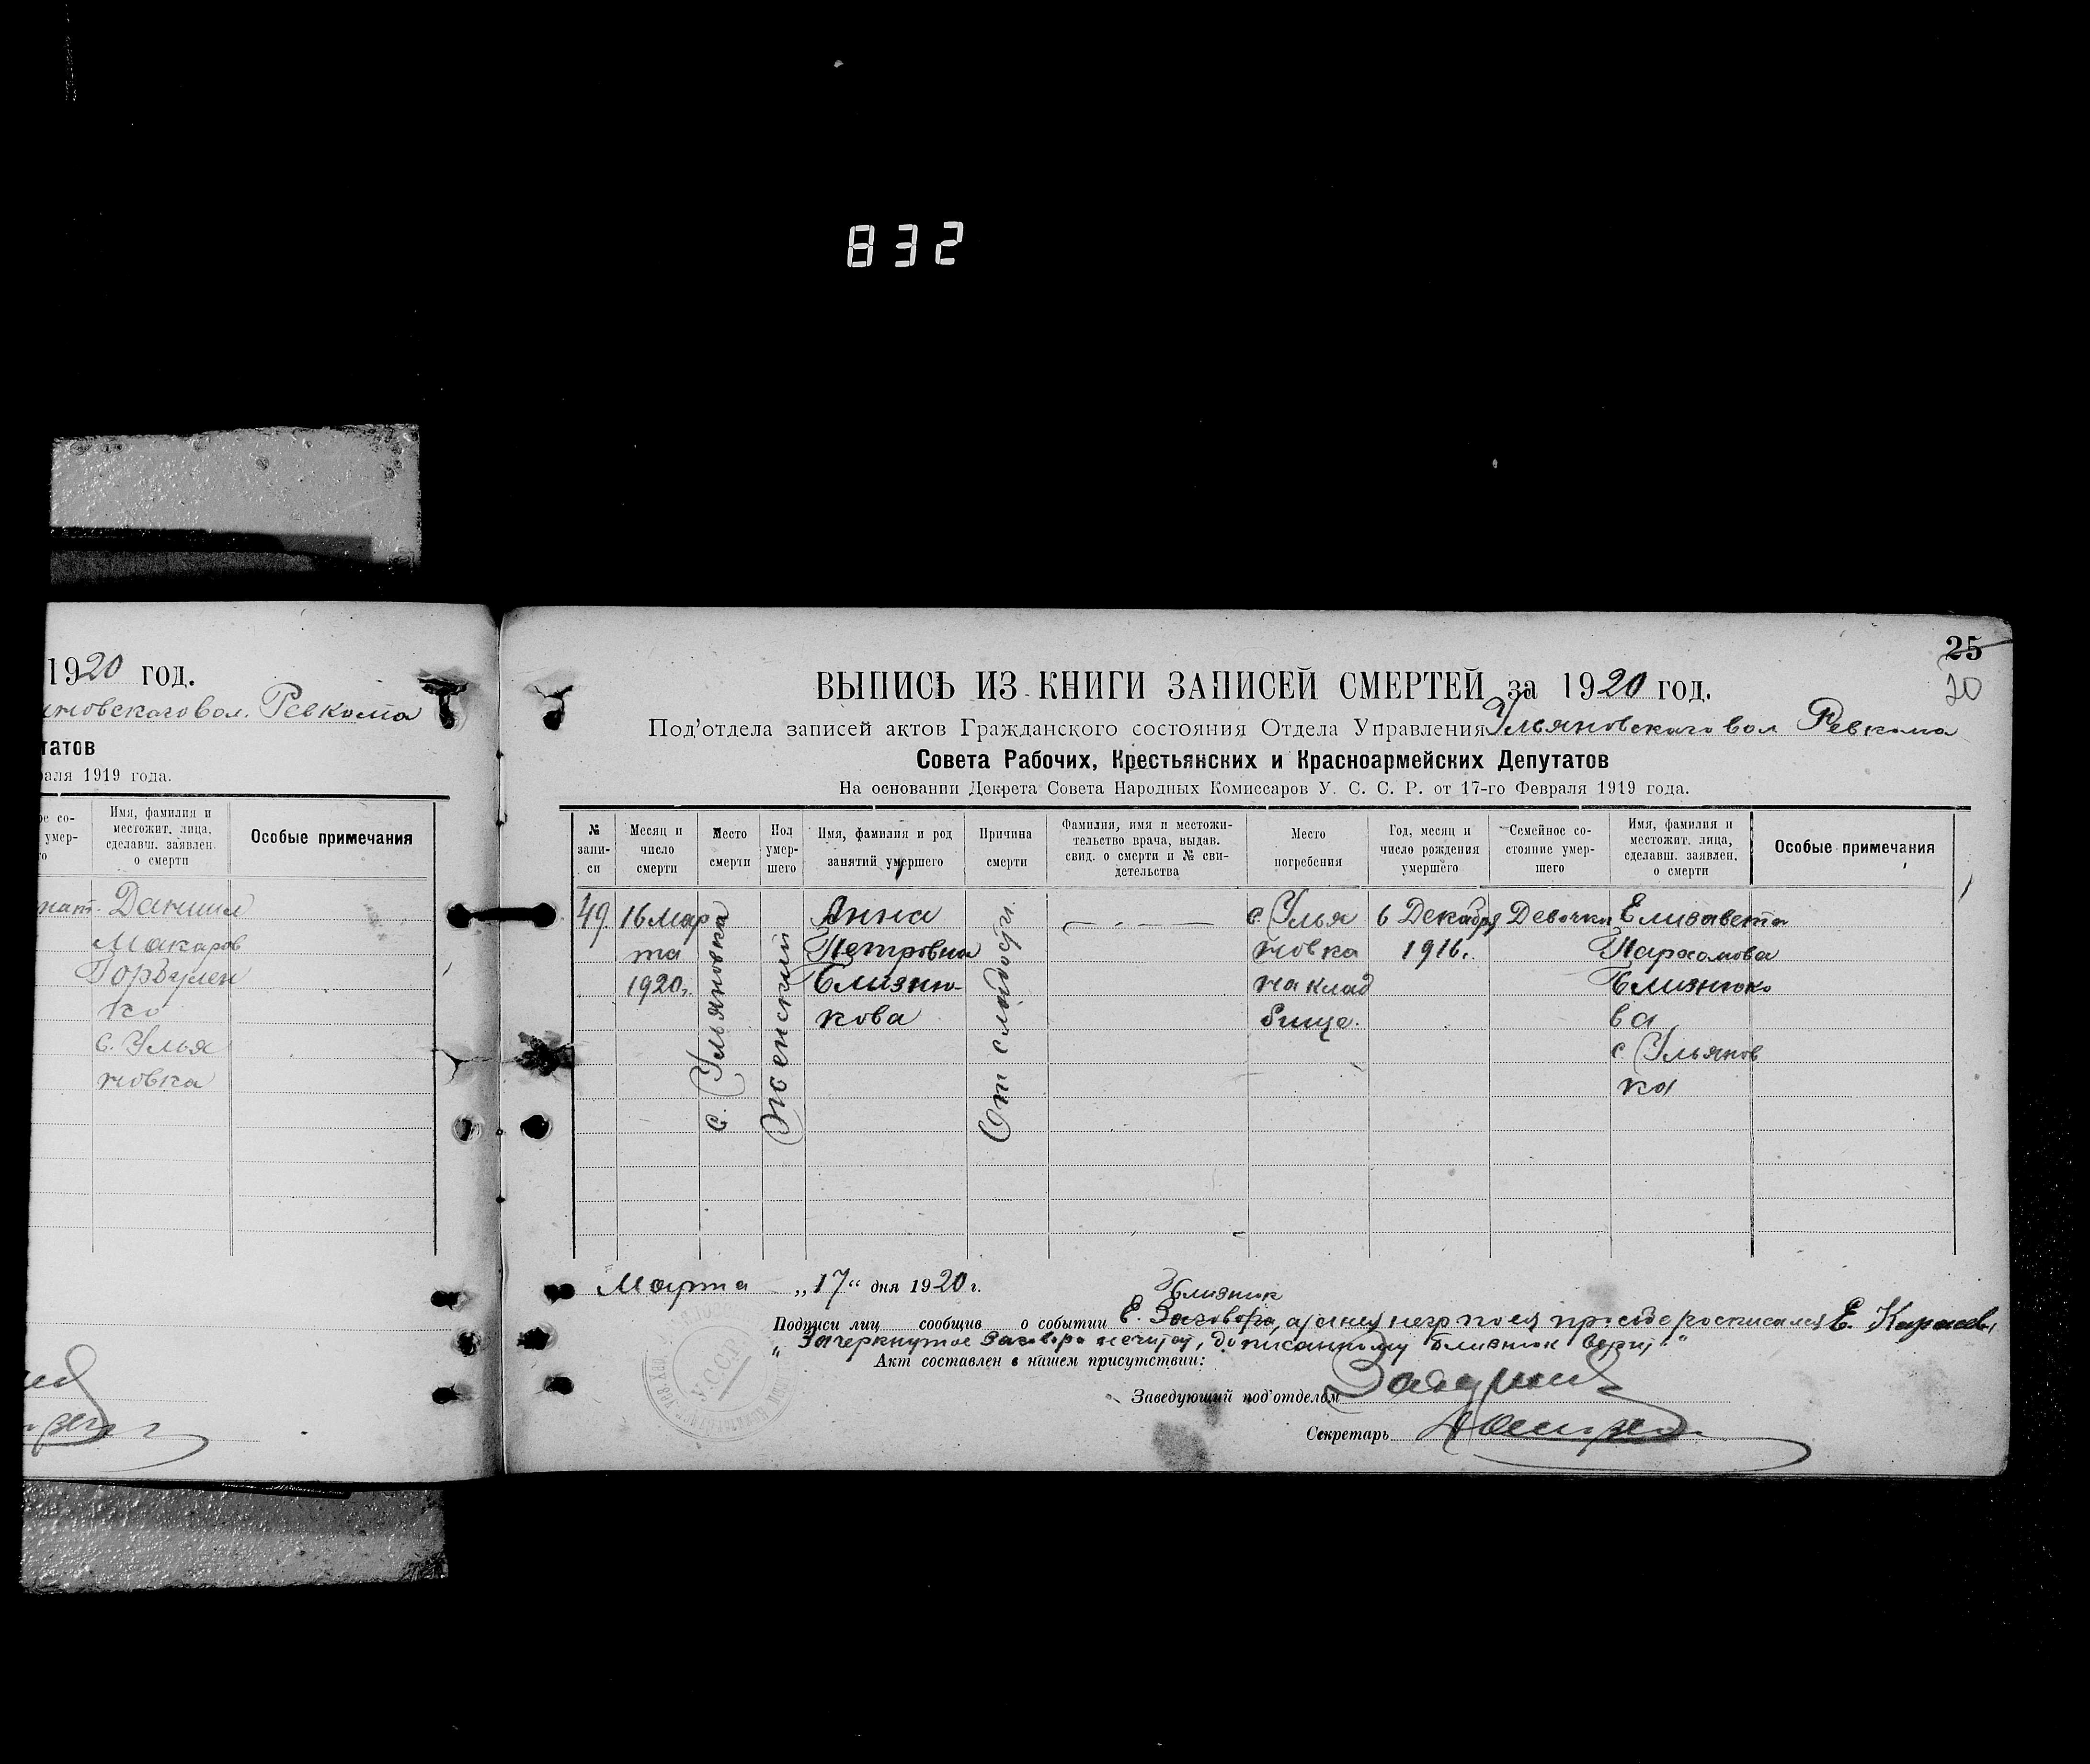 832
1920 год.
вол. Ревкома
татов
1919 года.
Имя, фамилия и
местожит. лица,
сделавш. заявлен.
о смерти
Особые примечания
Даниил
Макаров
Горбулен
ко
с. Улья
новка
25
20
ВЫПИСЬ ИЗ КНИГИ ЗАПИСЕЙ СМЕРТЕЙ за 1920 год.
Под'отдела записей актов Гражданского состояния Отдела Управления Ульяновского вол Ревкома
Совета Рабочих, Крестьянских и Красноармейских Депутатов
На основании Декрета Совета Народных Комиссаров У. С. С. Р. от 17-го Февраля 1919 года.
№
запи-
си
Месяц и
число
смерти
Место
смерти
Пол
умер-
шего
Имя, фамилия и род
занятий умершего
Причина
смерти
Фамилия, имя и местожи-
тельство врача, выдав.
свид. о смерти и № сви-
детельства
Место
погребения
Год, месяц и
число рождения
умершего
Семейное со-
стояние умер-
шего
Имя, фамилия и
местожит. лица,
сделавш. заявлен.
о смерти
Особые примечания
49.
16 Мар
та
1920г.
с. Ульяновка
Женский
Анна
Петровна
Близню-
кова
От
с. Улья
новка
на клад
бище.
6 Декабря
1916г.
Девочка
Елизавета
Пархомова
Близнюко
ва
с Ульянов
ка
Марта „17“ дня 1920 г.
Близнюк
Подписи лиц сообщив о событии Е. Заговора, а за нея негр по ея просьбе росписался Е.
„Зачеркнутое Заговора не читай, дописанному Близнюк верить“
Акт составлен в нашем присутствии:
Заведующий под'отделом
Секретарь
У.С.С.Р.